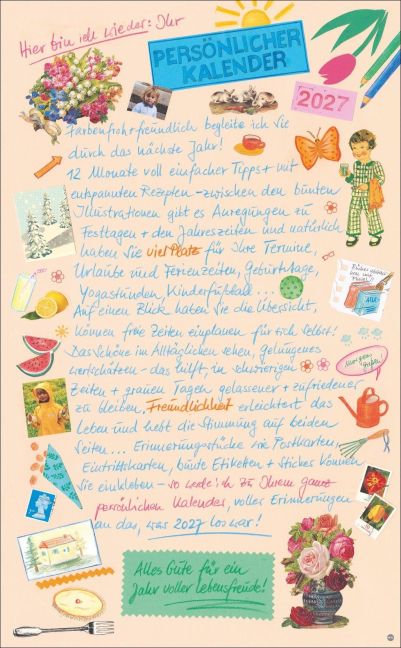 Hier bin ich wieder: Ihr
PERSÖNLICHER
KALENDER
2027
Farbenfroh + freundlich begleite ich Sie
durch das nächste Jahr!
12 Monate voll einfacher Tipps + mit
entspannten Rezepten - zwischen den bunten
Illustrationen gibt es Anregungen zu
Festtagen + den Jahreszeiten und natürlich
haben Sie viel Platz für Ihre Termine,
Urlaube und Ferienzeiten, Geburtstage,
Yogastunden, Kinderfußball ...
Auf einen Blick haben Sie die Übersicht,
können freie Zeiten einplanen für sich selbst!
Das Schöne im Alltäglichen sehen, gelungenes
wertschätzen - das hilft, in schwierigen
Zeiten + grauen Tagen gelassener + zufriedener
zu bleiben, Freundlichkeit erleichtert das
Leben und hebt die Stimmung auf beiden
Seiten... Erinnerungsstücke wie Postkarten,
Eintrittskarten, bunte Etiketten + Sticker können
Sie einkleben - so werde ich zu Ihrem ganz
persönlichen Kalender, voller Erinnerungen
an das, was 2027 los war!
Alles Gute für ein
Jahr voller Lebensfreude!